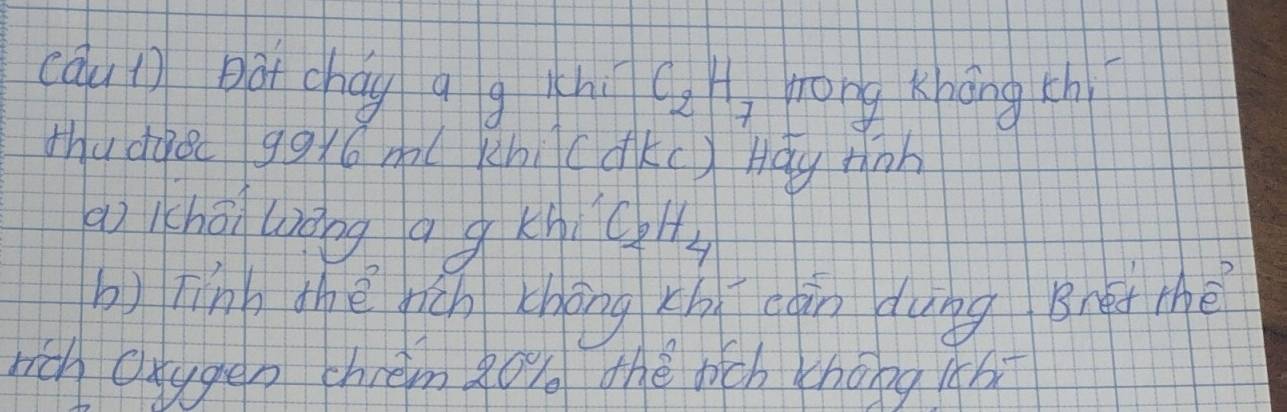 Câu 1) Đốt cháy a g khí C₂H₇ trong không khí
thu được 9916 ml khí (đkc) Hãy tính
a) Khối lượng a g khí C₂H₄
b) Tính thể tích không khí cần dùng. Biết thể
tích Oxygen chiếm 20% thể tích không khí